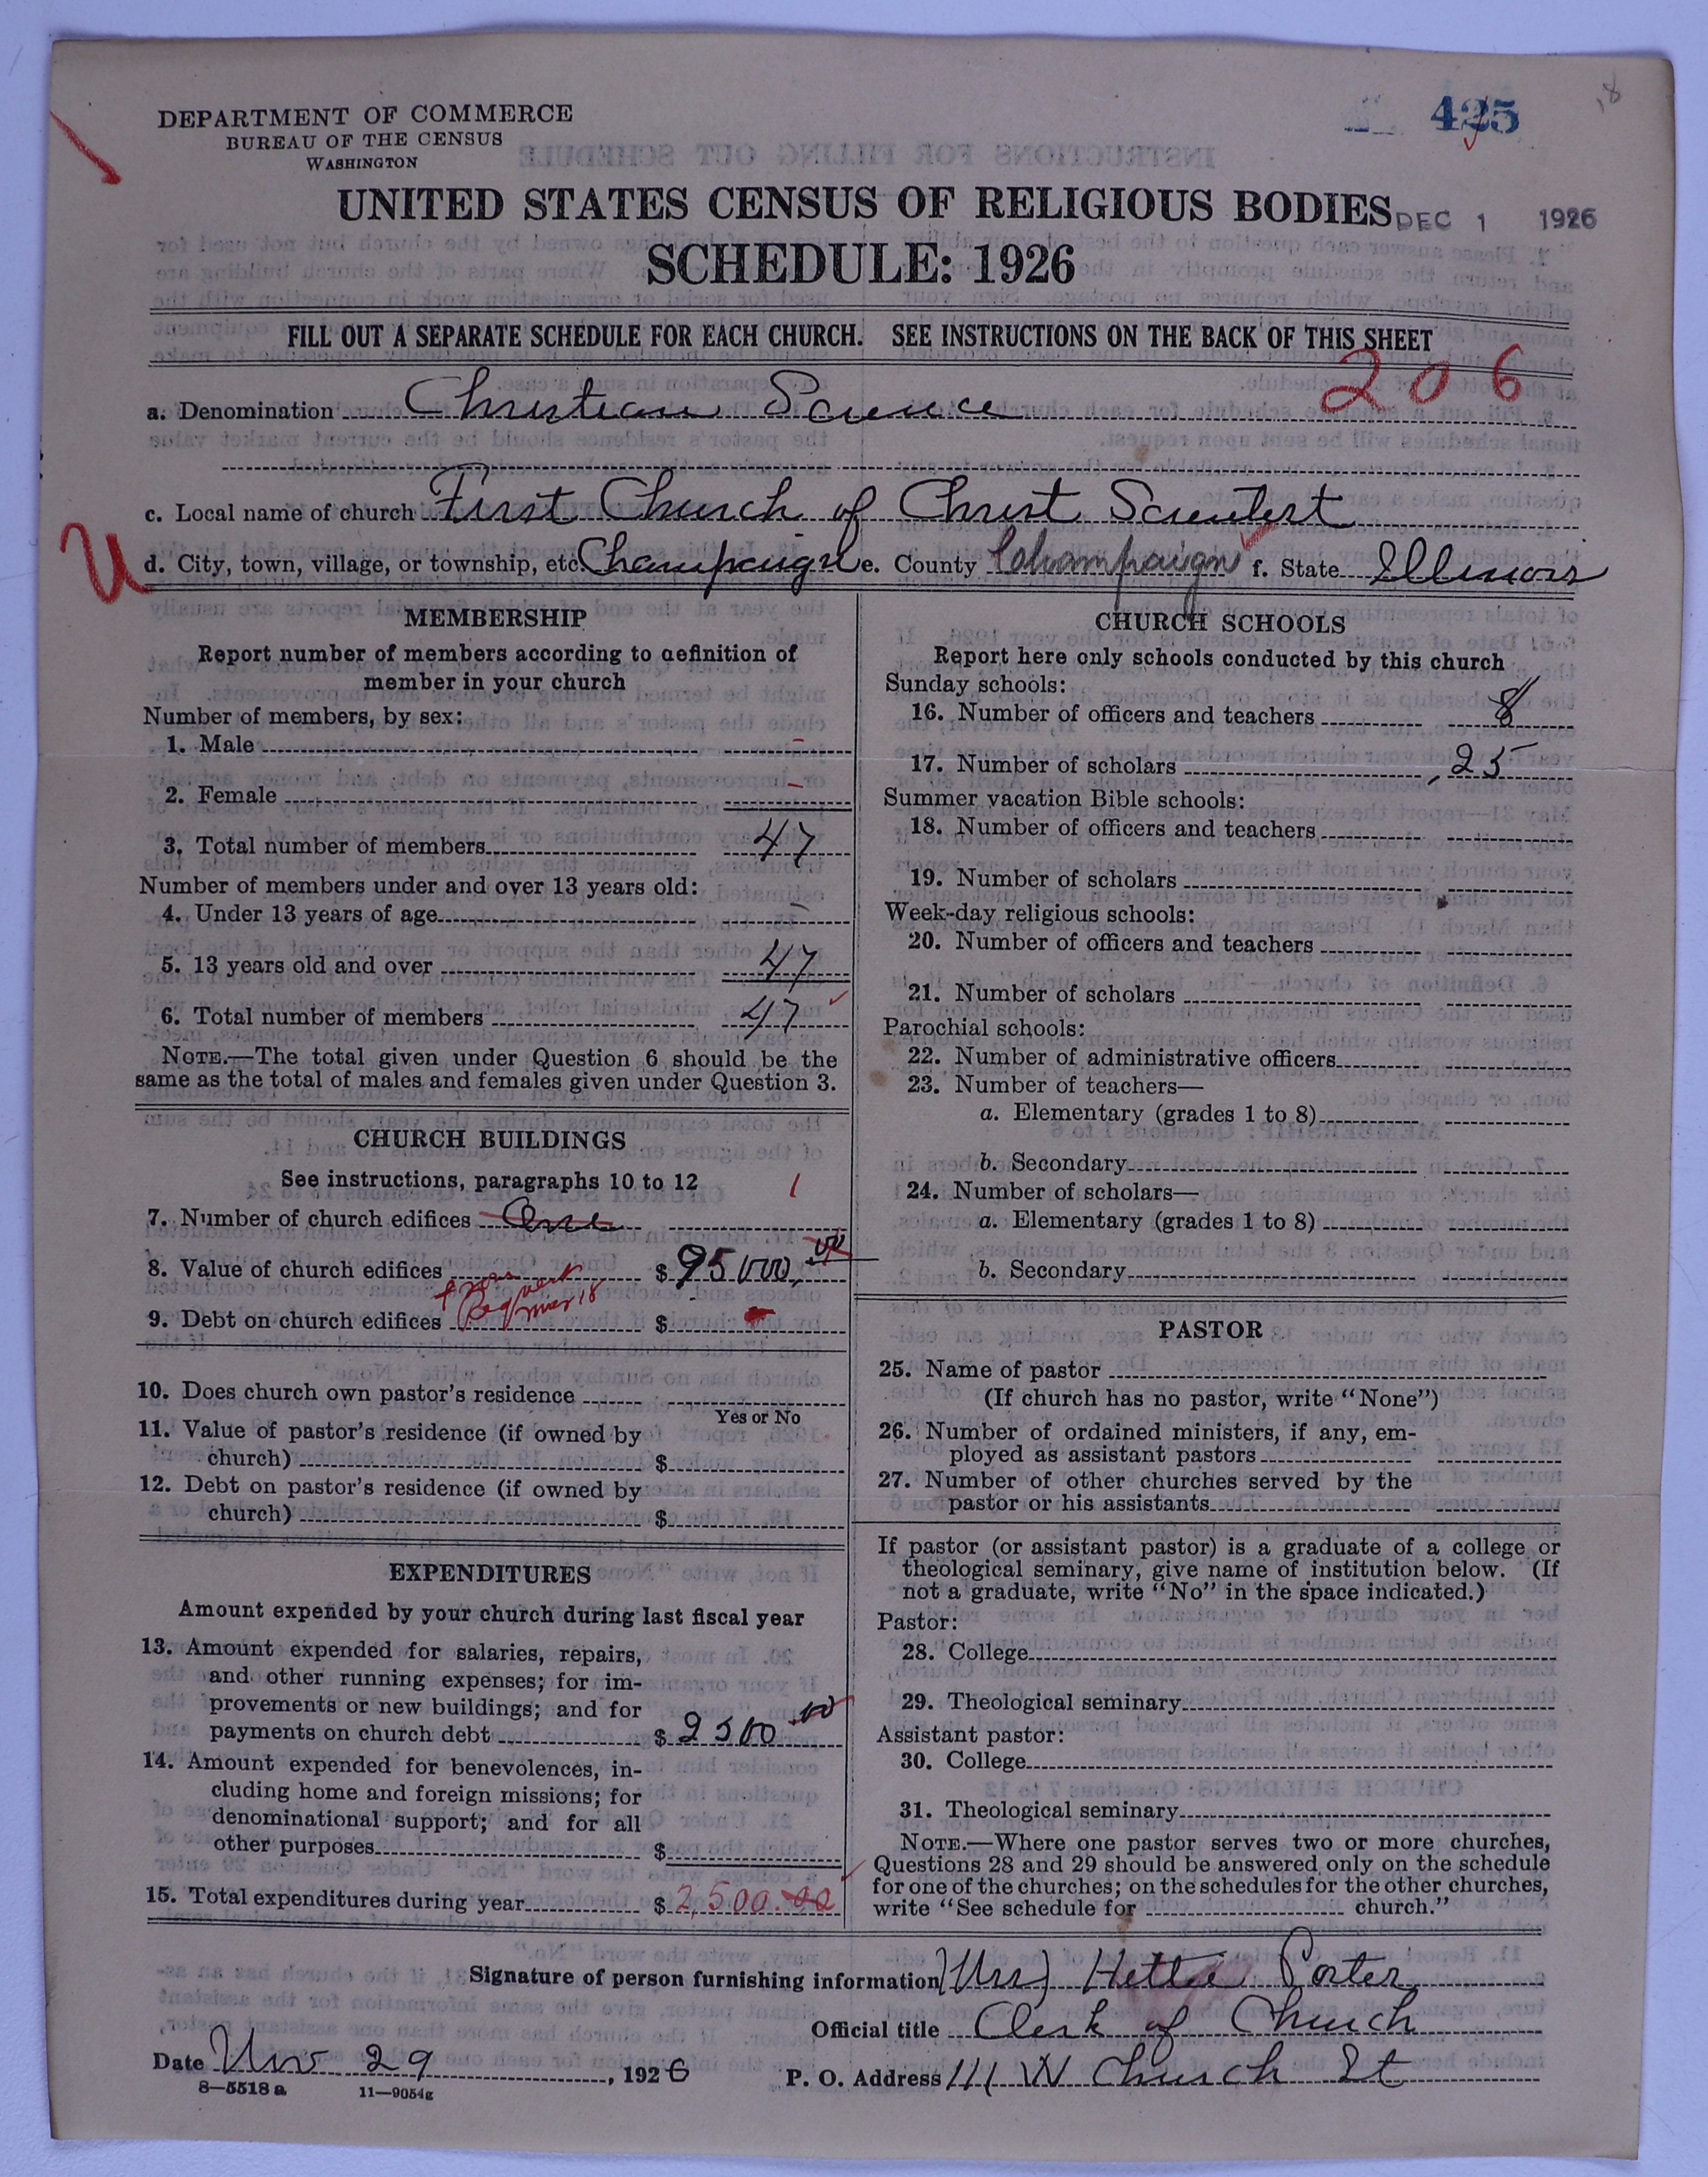 DEPARTMENT OF COMMERCE
BUREAU OF THE CENSUS
WASHINGTON
425
18
UNITED STATES CENSUS OF RELIGIOUS BODIES
DEC 1 1926
SCHEDULE: 1926
FILL OUT A SEPARATE SCHEDULE FOR EACH CHURCH. SEE INSTRUCTIONS ON THE BACK OF THIS SHEET
206
a. Denomination Christian Science
c. Local name of church First Church of Christ Scientist
U
d. City, town, village, or township, etc. Champaign e. County Champaign f. State Illinois
MEMBERSHIP
Report number of members according to definition of
member in your church
Number of members, by sex:
1. Male -
2. Female -
3. Total number of members 47
Number of members under and over 13 years old:
4. Under 13 years of age -
5. 13 years old and over 47
6. Total number of members 47
NOTE.—The total given under Question 6 should be the
same as the total of males and females given under Question 3.
CHURCH BUILDINGS
See instructions, paragraphs 10 to 12
1
7. Number of church edifices One
8. Value of church edifices $ 95000.00
9. Debt on church edifices $
10. Does church own pastor's residence
Yes or No
11. Value of pastor's residence (if owned by
church) $
12. Debt on pastor's residence (if owned by
church) $
EXPENDITURES
Amount expended by your church during last fiscal year
13. Amount expended for salaries, repairs,
and other running expenses; for im-
provements or new buildings; and for
payments on church debt $ 2500.00
14. Amount expended for benevolences, in-
cluding home and foreign missions; for
denominational support; and for all
other purposes $
15. Total expenditures during year $ 2,500.00
CHURCH SCHOOLS
Report here only schools conducted by this church
Sunday schools:
16. Number of officers and teachers 8
17. Number of scholars 25
Summer vacation Bible schools:
18. Number of officers and teachers
19. Number of scholars
Week-day religious schools:
20. Number of officers and teachers
21. Number of scholars
Parochial schools:
22. Number of administrative officers
23. Number of teachers—
a. Elementary (grades 1 to 8)
b. Secondary
24. Number of scholars—
a. Elementary (grades 1 to 8)
b. Secondary
PASTOR
25. Name of pastor
(If church has no pastor, write "None")
26. Number of ordained ministers, if any, em-
ployed as assistant pastors
27. Number of other churches served by the
pastor or his assistants
If pastor (or assistant pastor) is a graduate of a college or
theological seminary, give name of institution below. (If
not a graduate, write "No" in the space indicated.)
Pastor:
28. College
29. Theological seminary
Assistant pastor:
30. College
31. Theological seminary
NOTE.—Where one pastor serves two or more churches,
Questions 28 and 29 should be answered only on the schedule
for one of the churches; on the schedules for the other churches,
write "See schedule for church."
Signature of person furnishing information (Mrs) Hettie Porter
Official title Clerk of Church
Date Nov 29, 1926
P. O. Address 111 W Church St
8—5518 a 11—9054g